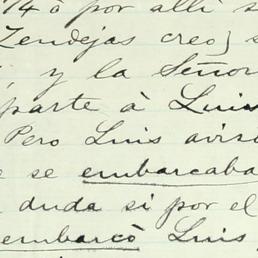 74 ó por allí s
Zendejas creo) s
, y la Señor
parte à Luis
Pero Luis aviso
e se embarcaba
duda si por el
embarcó Luis